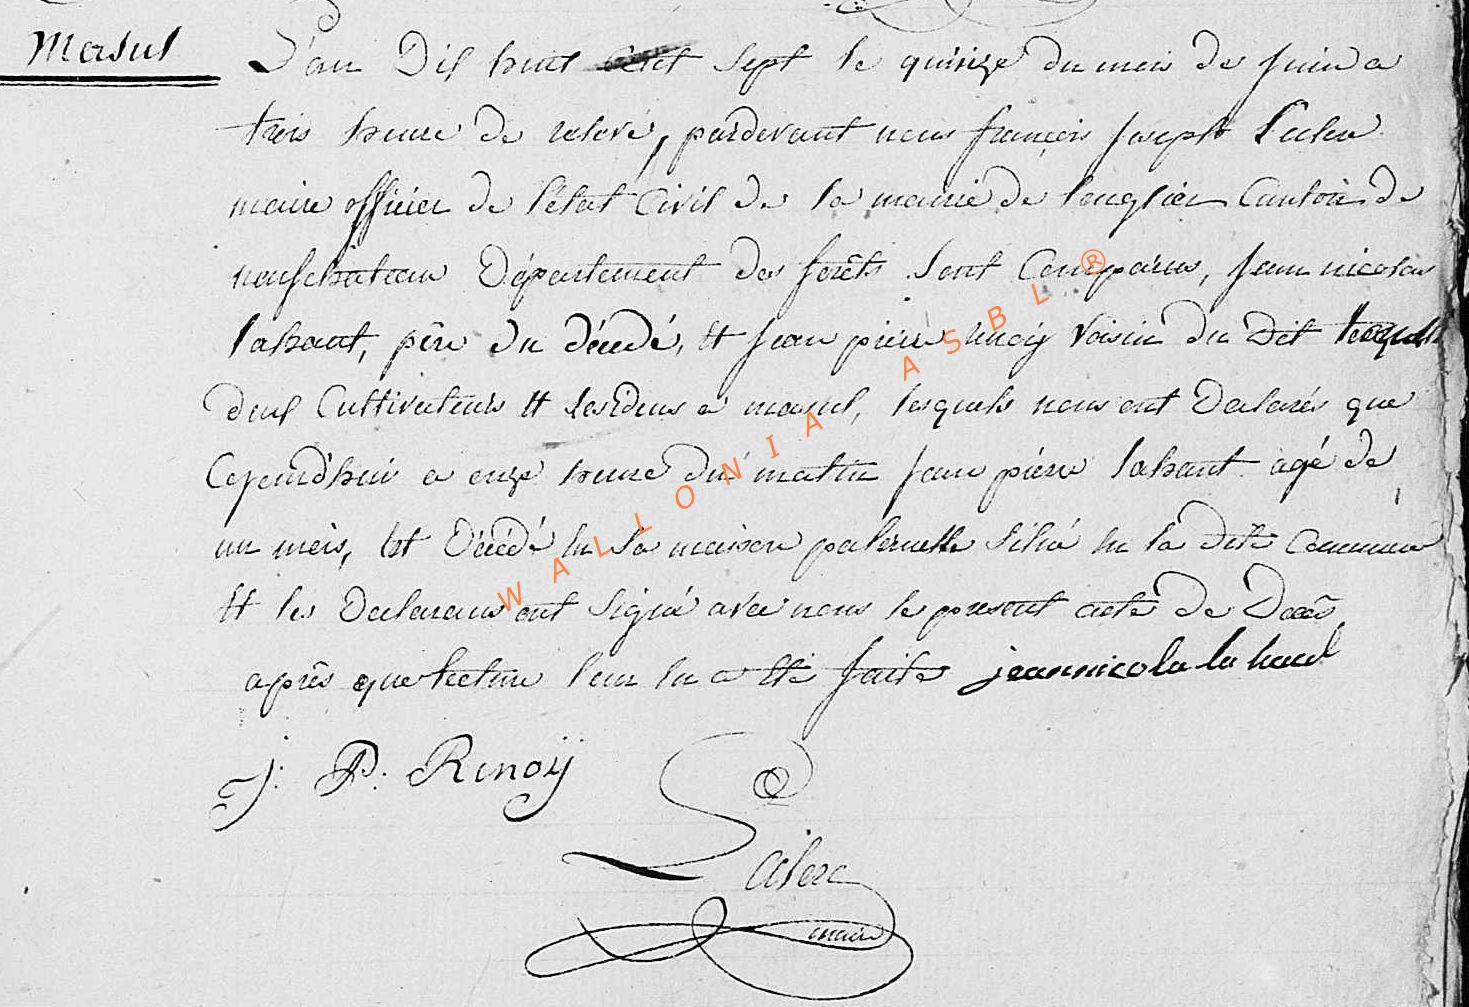 Masul
L'an Dix huit cent sept le quinze du mois de Juin a
trois heure de relevé, pardevant nous françois Joseph
maire officier de l'état Civil de la mairie de longlier Canton de
neufchateau Département des forêts sont Comparus, Jean nicolas
lahaut, père du décédé, et Jean pierre Voisin du Dit
deux Cultivateurs et residens a masul, lesquels nous ont Declarés que
Cejourd'hui a onze heure du matin Jean pierre lahaut agé de
un mois, est Décédé en sa maison paternelle situé en la dite Commune
et les Declarans ont signé avec nous le present acte de Décès
après que lecture leur en a eté faite jeannicola la haut
J: P: Rinoÿ
maire
WALLONIA ASBL ®